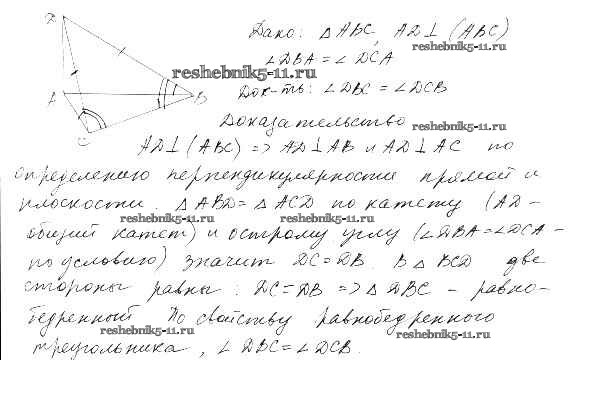 D
A
B
C
Дано: △ABC, AD⊥(ABC)
∠DBA=∠DCA
Док-ть: ∠DBC=∠DCB
Доказательство
AD⊥(ABC) => AD⊥AB и AD⊥AC по
определению перпендикулярности прямой и
плоскости. △ABD=△ACD по катету (AD-
общий катет) и острому углу (∠DBA=∠DCA-
по условию) значит DC=DB. В △BCD две
стороны равны: DC=DB => △DBC - равно-
бедренный По свойству равнобедренного
треугольника, ∠DBC=∠DCB.
reshebnik5-11.ru
reshebnik5-11.ru
reshebnik5-11.ru
reshebnik5-11.ru
reshebnik5-11.ru
reshebnik5-11.ru
reshebnik5-11.ru